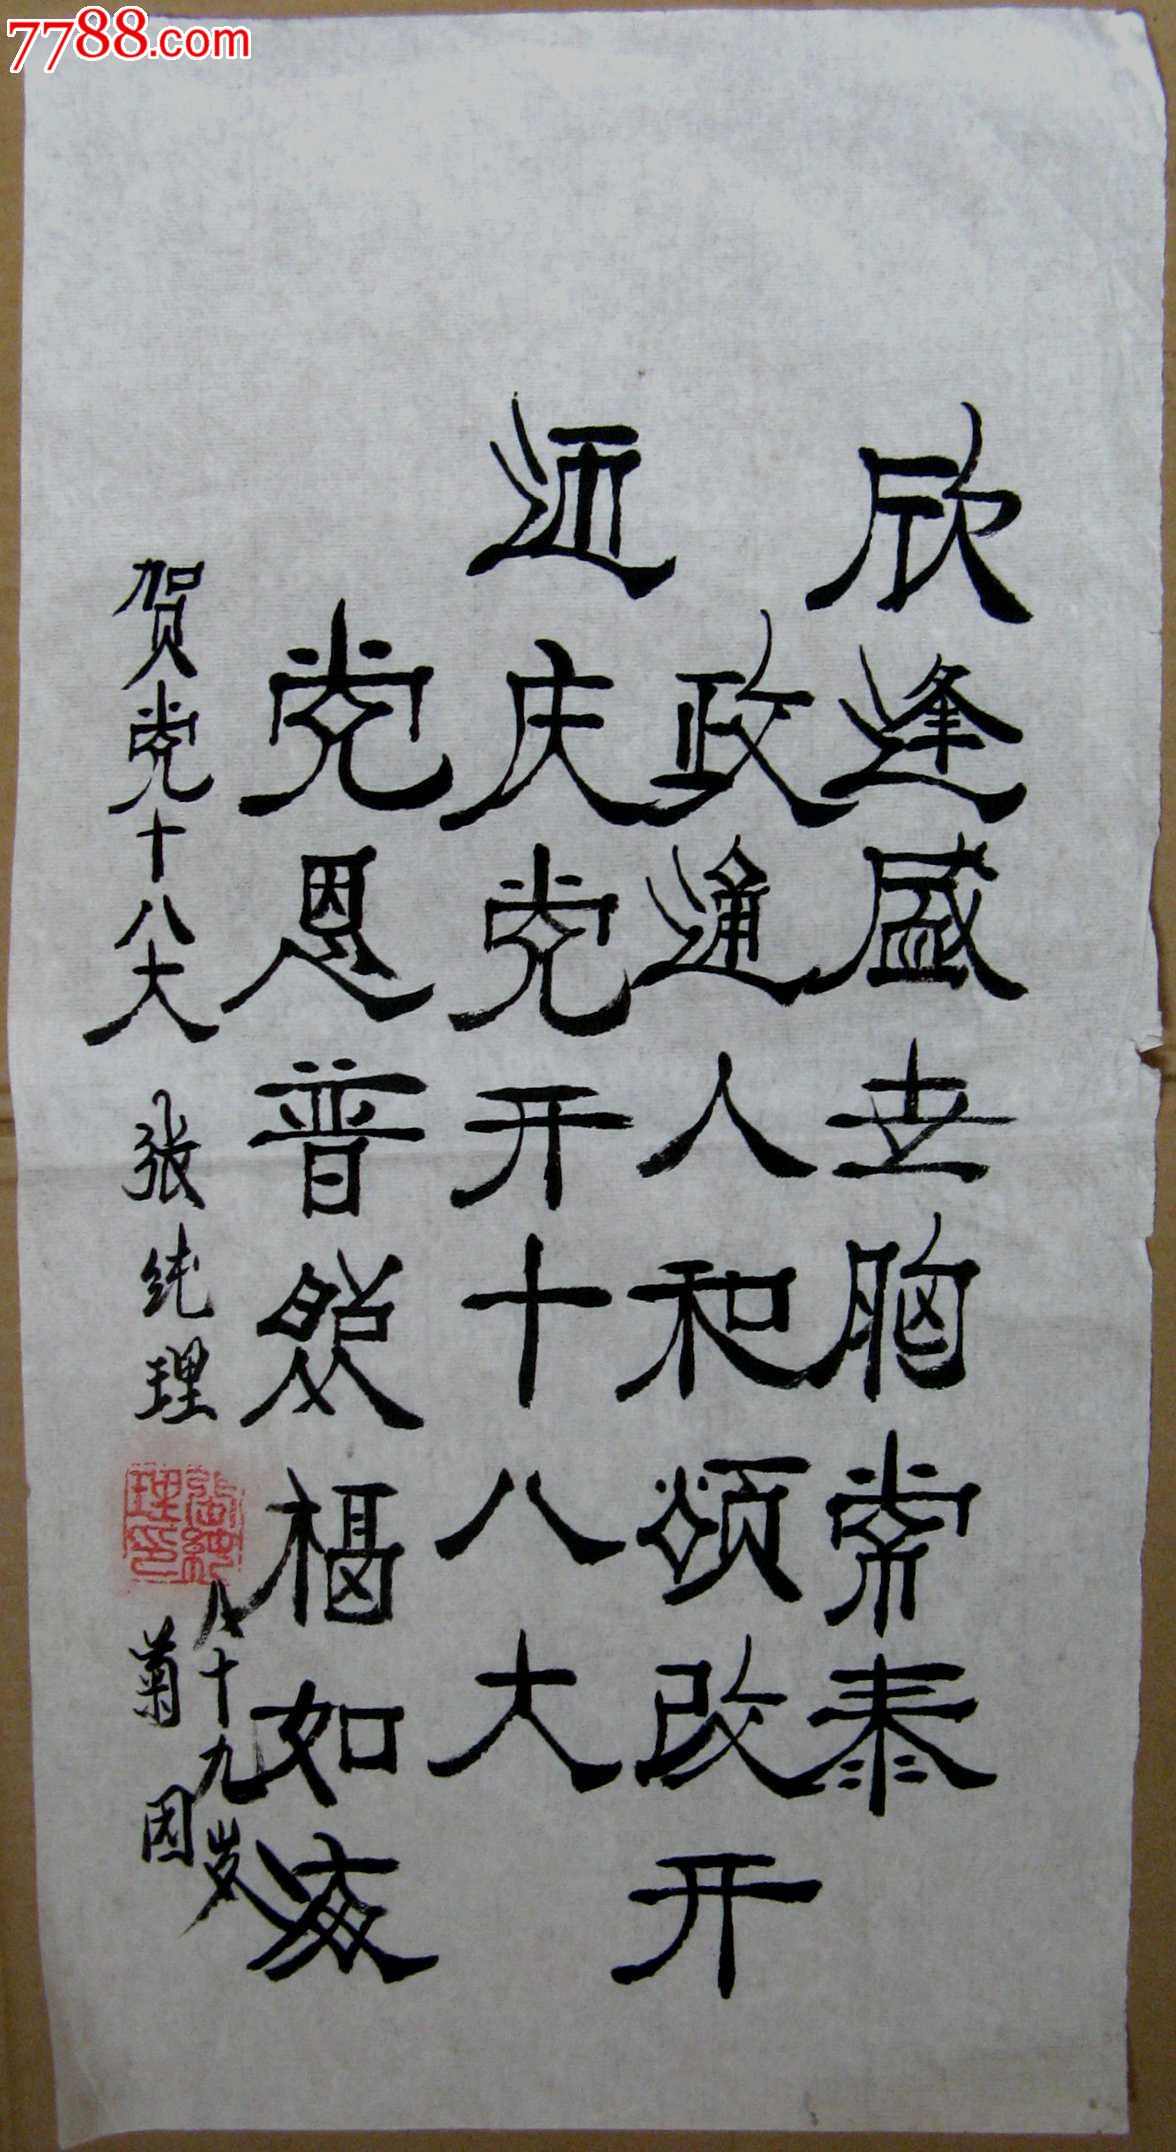 7788.com
欣逢盛世胸常泰
政通人和颂改开
迎庆党开十八大
党恩普照福如海
贺党十八大 张纯理
張純理印
八十九岁
菊